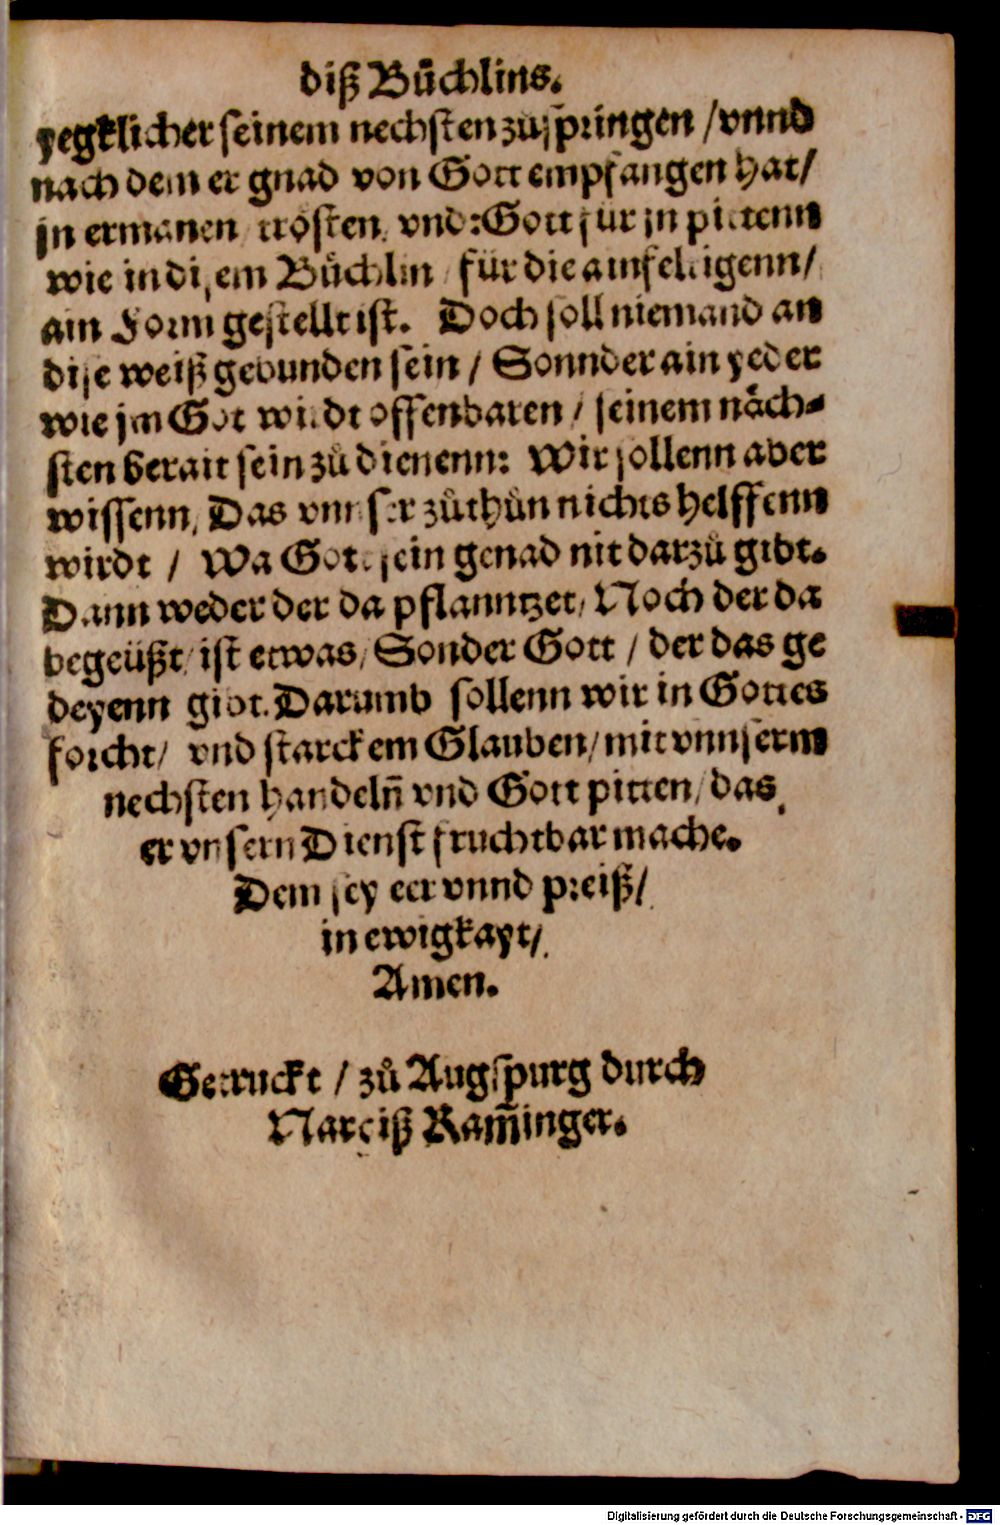 diß Bůchlins.
yegklicher seinem nechsten zuspringen / vnnd
nach dem er gnad von Gott empfangen hat /
jn ermanen trösten vnd Gott für jn pittenn
wie in disem Bůchlin / für die ainfeltigenn /
ain Form gestellt ist. Doch soll niemand an
dise weiß gebunden sein / Sonnder ain yeder
wie jm Got wirdt offenbaren / seinem näch-
sten berait sein zů dienenn: Wir sollenn aber
wissenn, Das vnnser zůthůn nichts helffenn
wirdt / Wa Got sein genad nit darzů gibt.
Dann weder der da pflanntzet, Noch der da
begeüßt / ist etwas, Sonder Gott / der das ge
deyenn gibt. Darumb sollenn wir in Gottes
forcht / vnd starckem Glauben / mit vnnserm
nechsten handelñ vnd Gott pitten / das
er vnsern Dienst fruchtbar mache.
Dem sey eer vnnd preiß /
in ewigkayt /
Amen.
Getruckt / zů Augspurg durch
Narciß Ram̃inger.
Digitalisierung gefördert durch die Deutsche Forschungsgemeinschaft - DFG